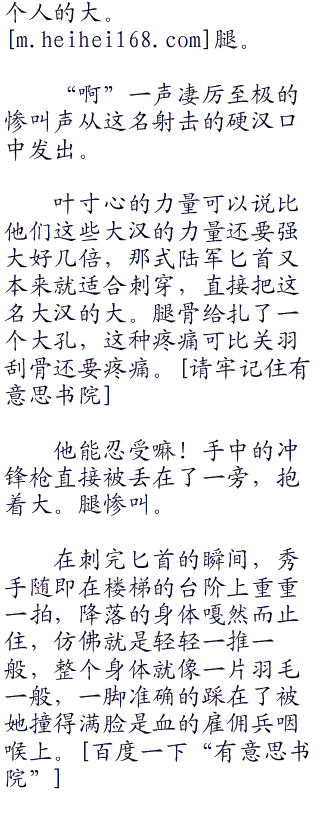 个人的大。
[m.heihei168.com]腿。
“啊”一声凄厉至极的
惨叫声从这名射击的硬汉口
中发出。
叶寸心的力量可以说比
他们这些大汉的力量还要强
大好几倍，那式陆军匕首又
本来就适合刺穿，直接把这
名大汉的大。腿骨给扎了一
个大孔，这种疼痛可比关羽
刮骨还要疼痛。[请牢记住有
意思书院]
他能忍受嘛！手中的冲
锋枪直接被丢在了一旁，抱
着大。腿惨叫。
在刺完匕首的瞬间，秀
手随即在楼梯的台阶上重重
一拍，降落的身体嘎然而止
住，仿佛就是轻轻一推一
般，整个身体就像一片羽毛
一般，一脚准确的踩在了被
她撞得满脸是血的雇佣兵咽
喉上。[百度一下“有意思书
院”]